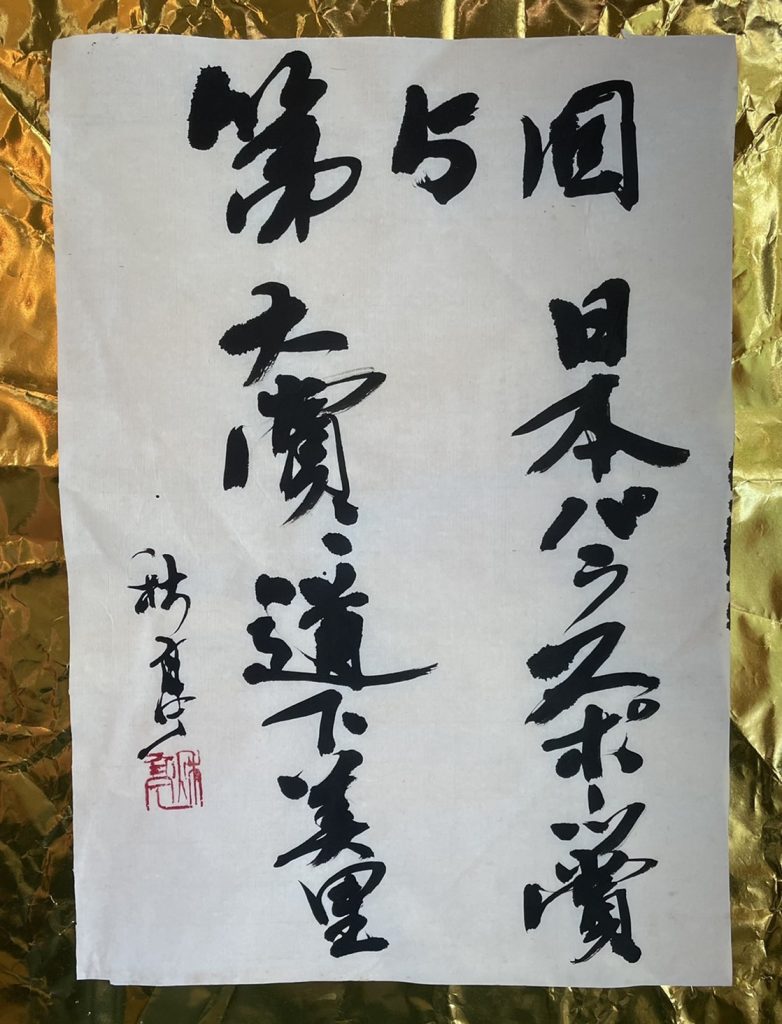 第5回
日本パラスポーツ賞
大賞、道下美里